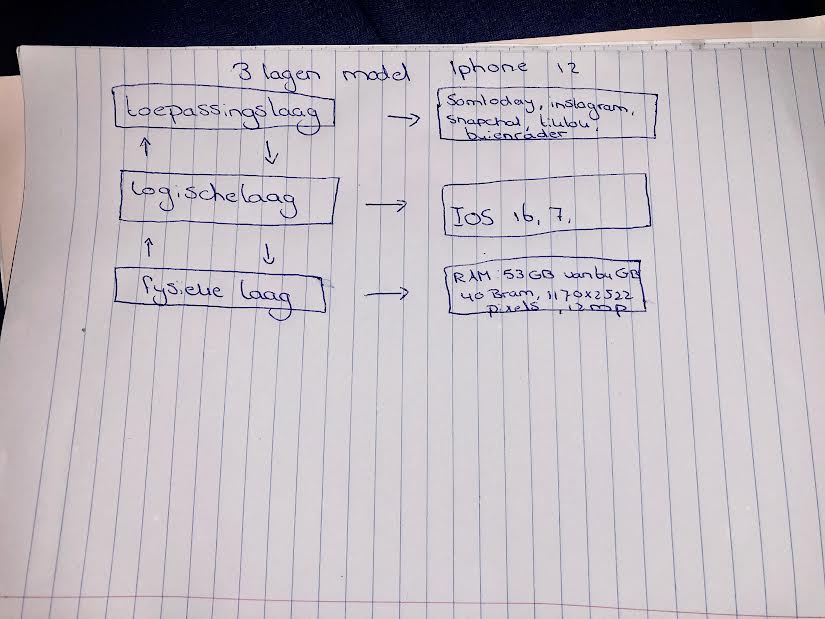 3 lagen model Iphone 12
toepassingslaag
Somtoday, instagram,
snapchat,
buienrader
logischelaag
IOS 16, 7,
fysieke laag
RAM 53 GB van 64 GB
4GB ram, 1170x2522
pixels, 12 mp